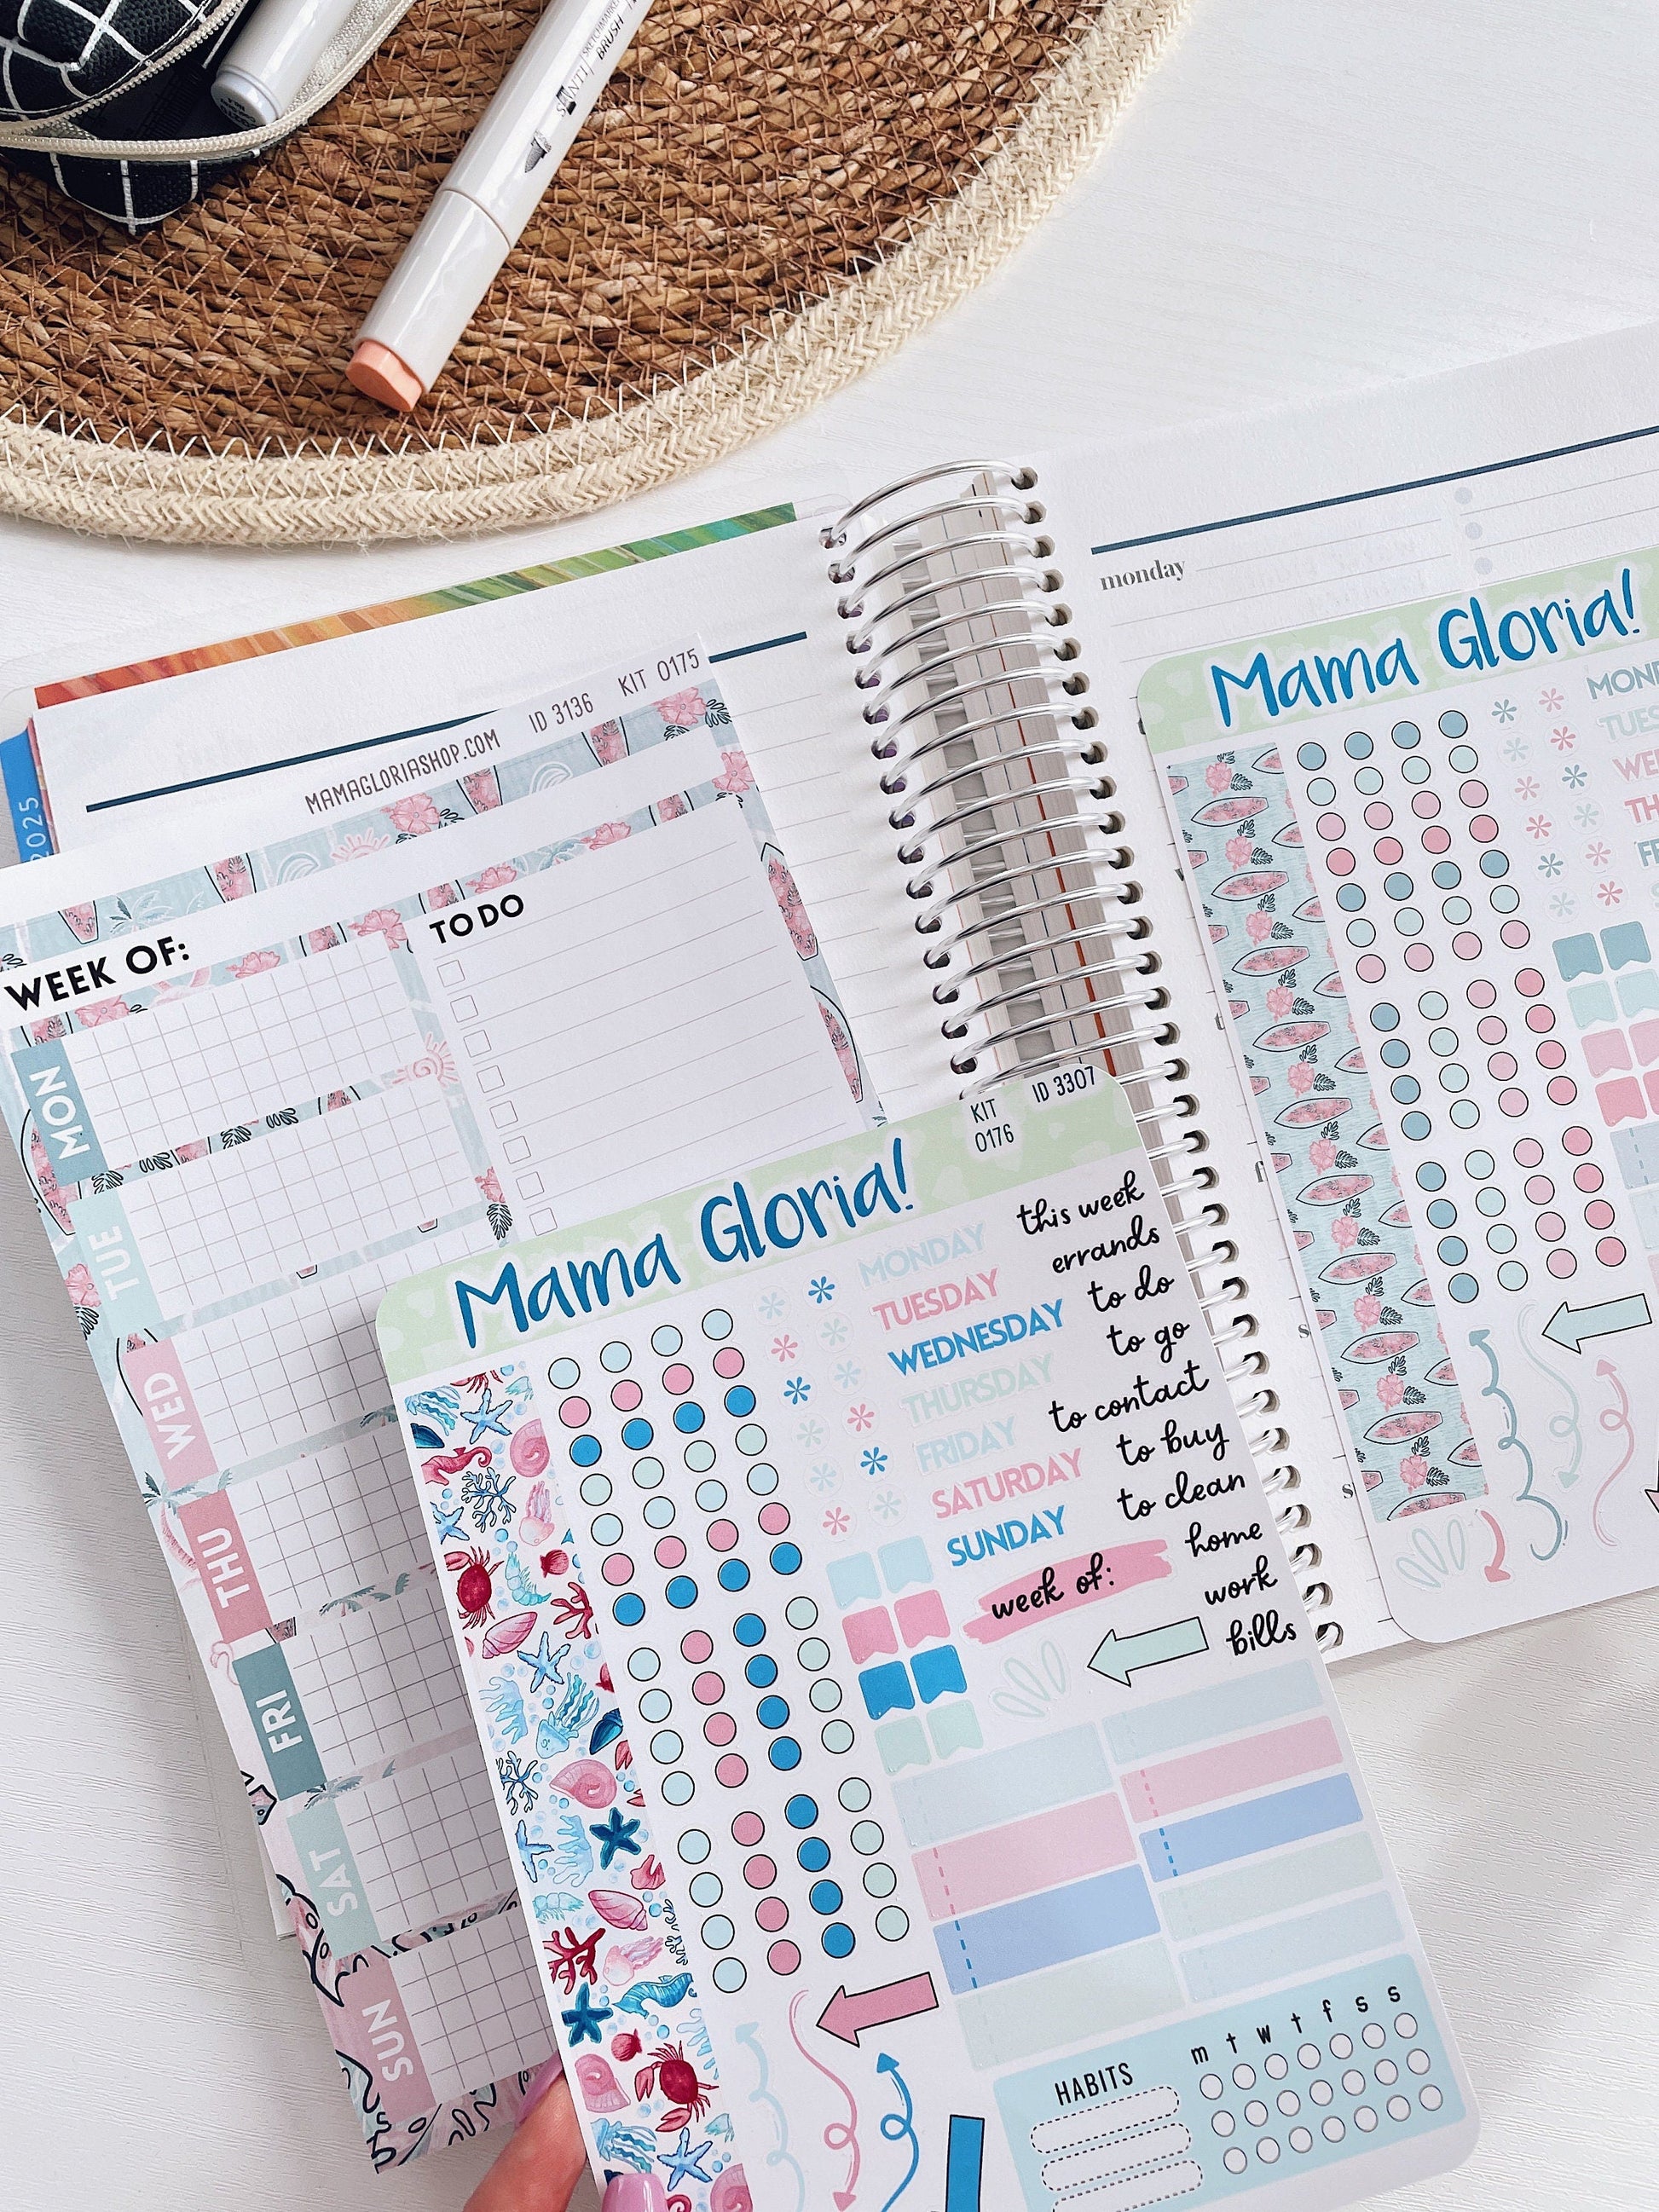 SANTI
SKETCHMARKER
BRUSH
2025
MAMAGLORIASHOP.COM
ID 3136
KIT 0175
WEEK OF:
TO DO
MON
TUE
WED
THU
FRI
SAT
SUN
monday
Mama Gloria!
KIT
0176
ID 3307
Mama Gloria!
MONDAY
TUESDAY
WEDNESDAY
THURSDAY
FRIDAY
SATURDAY
SUNDAY
week of:
this week
errands
to do
to go
to contact
to buy
to clean
home
work
bills
HABITS
m t w t f s s